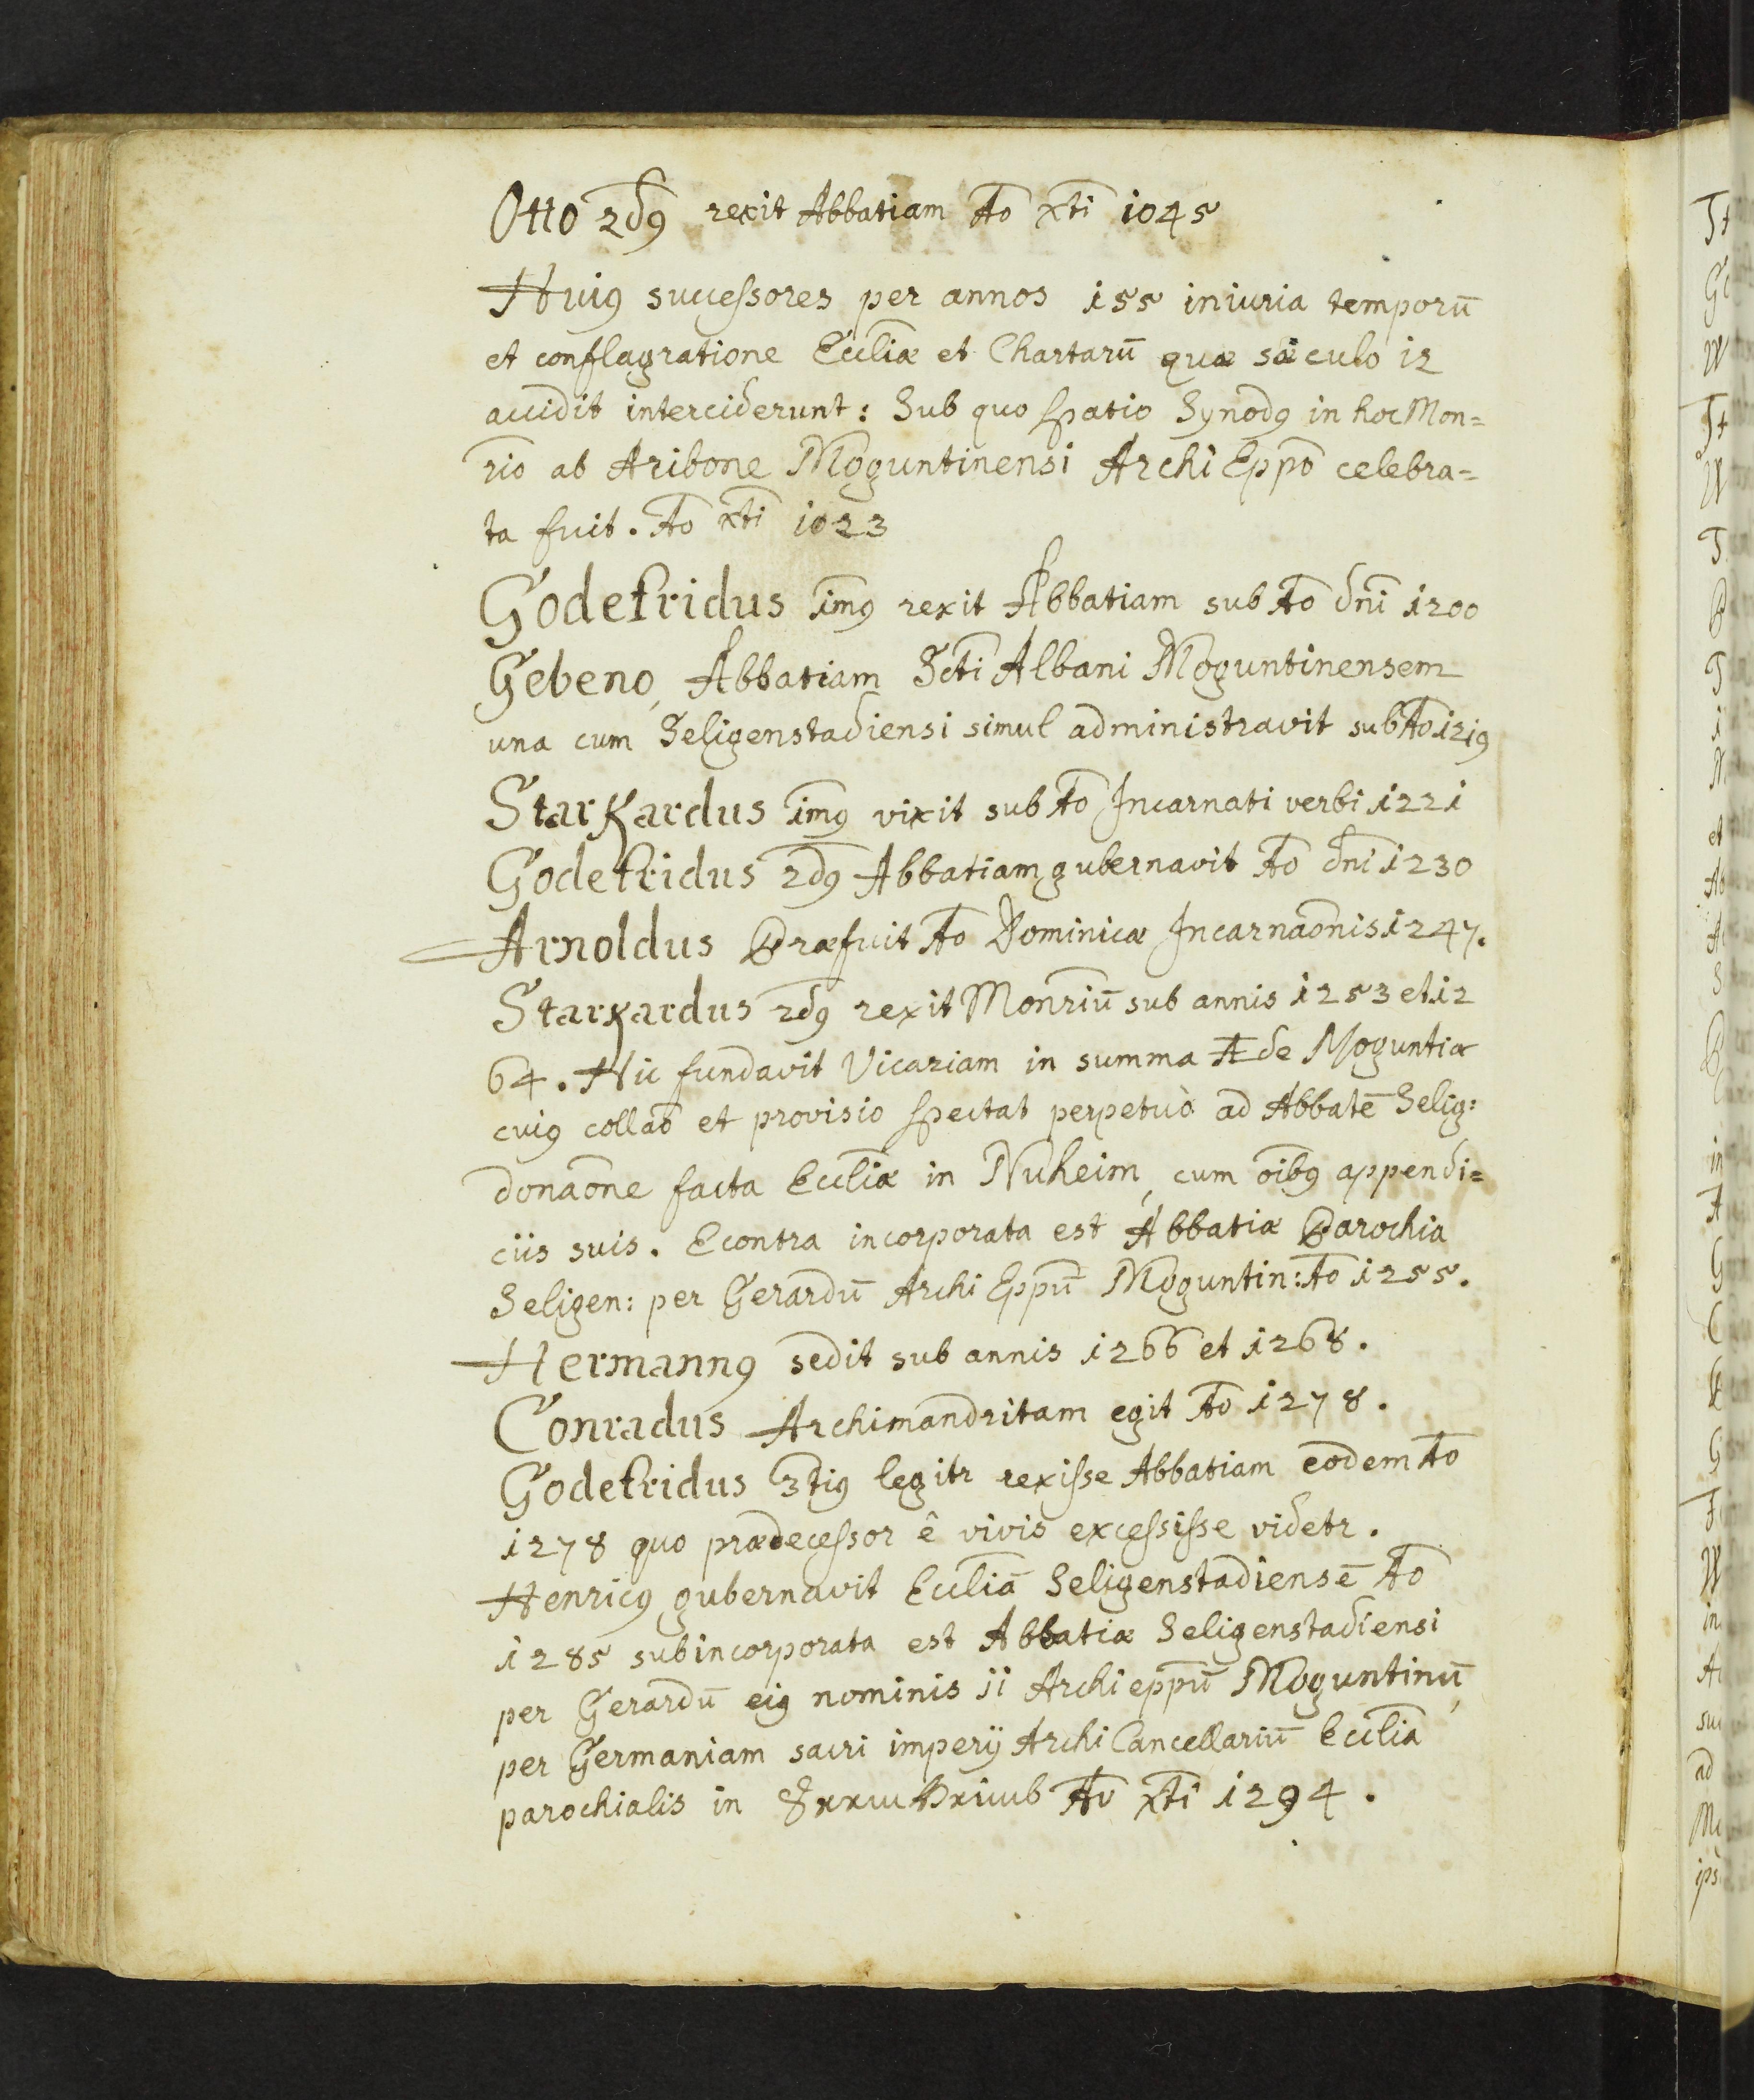 Otto 2dꝰ rexit Abbatiam Ao xti 1045
Huiꝰ successores per annos 155 iniuria temporū
et conflagratione Eccliæ et Chartarū quæ sæculo 12
accidit interciderunt: Sub quo spatio Synodꝰ in hoc Mon=
rio ab Aribone Moguntinensi Archi Eppo celebra=
ta fuit. Ao xti 1023
Godefridus imꝰ rexit Abbatiam sub Ao dni 1200
Gebeno, Abbatiam Scti Albani Moguntinensem
una cum Seligenstadiensi simul administravit sub Ao 1219
Starkardus imꝰ vixit sub Ao Incarnati verbi 1221
Godefridus 2dꝰ Abbatiam gubernavit Ao dni 1230
Arnoldus Præfuit Ao Dominicæ Incarnaonis 1247.
Starkardus 2dꝰ rexit Monriū sub annis 1253 et 12
64. Hic fundavit Vicariam in summa Æde Moguntiæ
cuiꝰ collao et provisio spectat perpetuò ad Abbatē Selig:
donaone facta Eccliæ in Nuheim, cum oibꝰ appendi=
ciis suis. Econtra incorporata est Abbatiæ Parochia
Seligen: per Gerardū Archi Eppū Moguntin: Ao 1255.
Hermannꝰ sedit sub annis 1266 et 1268.
Conradus Archimandritam egit Ao 1278.
Godefridus 3tiꝰ legitr rexisse Abbatiam eodem Ao
1278 quo prædecessor ê vivis excessisse videtr.
Henricꝰ gubernavit Eccliā Seligenstadiensē Ao
1285 sub incorporata est Abbatiæ Seligenstadiensi
per Gerardū eiꝰ nominis ii Archi eppū Moguntinū,
per Germaniam sacri imperij Archi Cancellariū Ecclia
parochialis in Ao xti 1294.